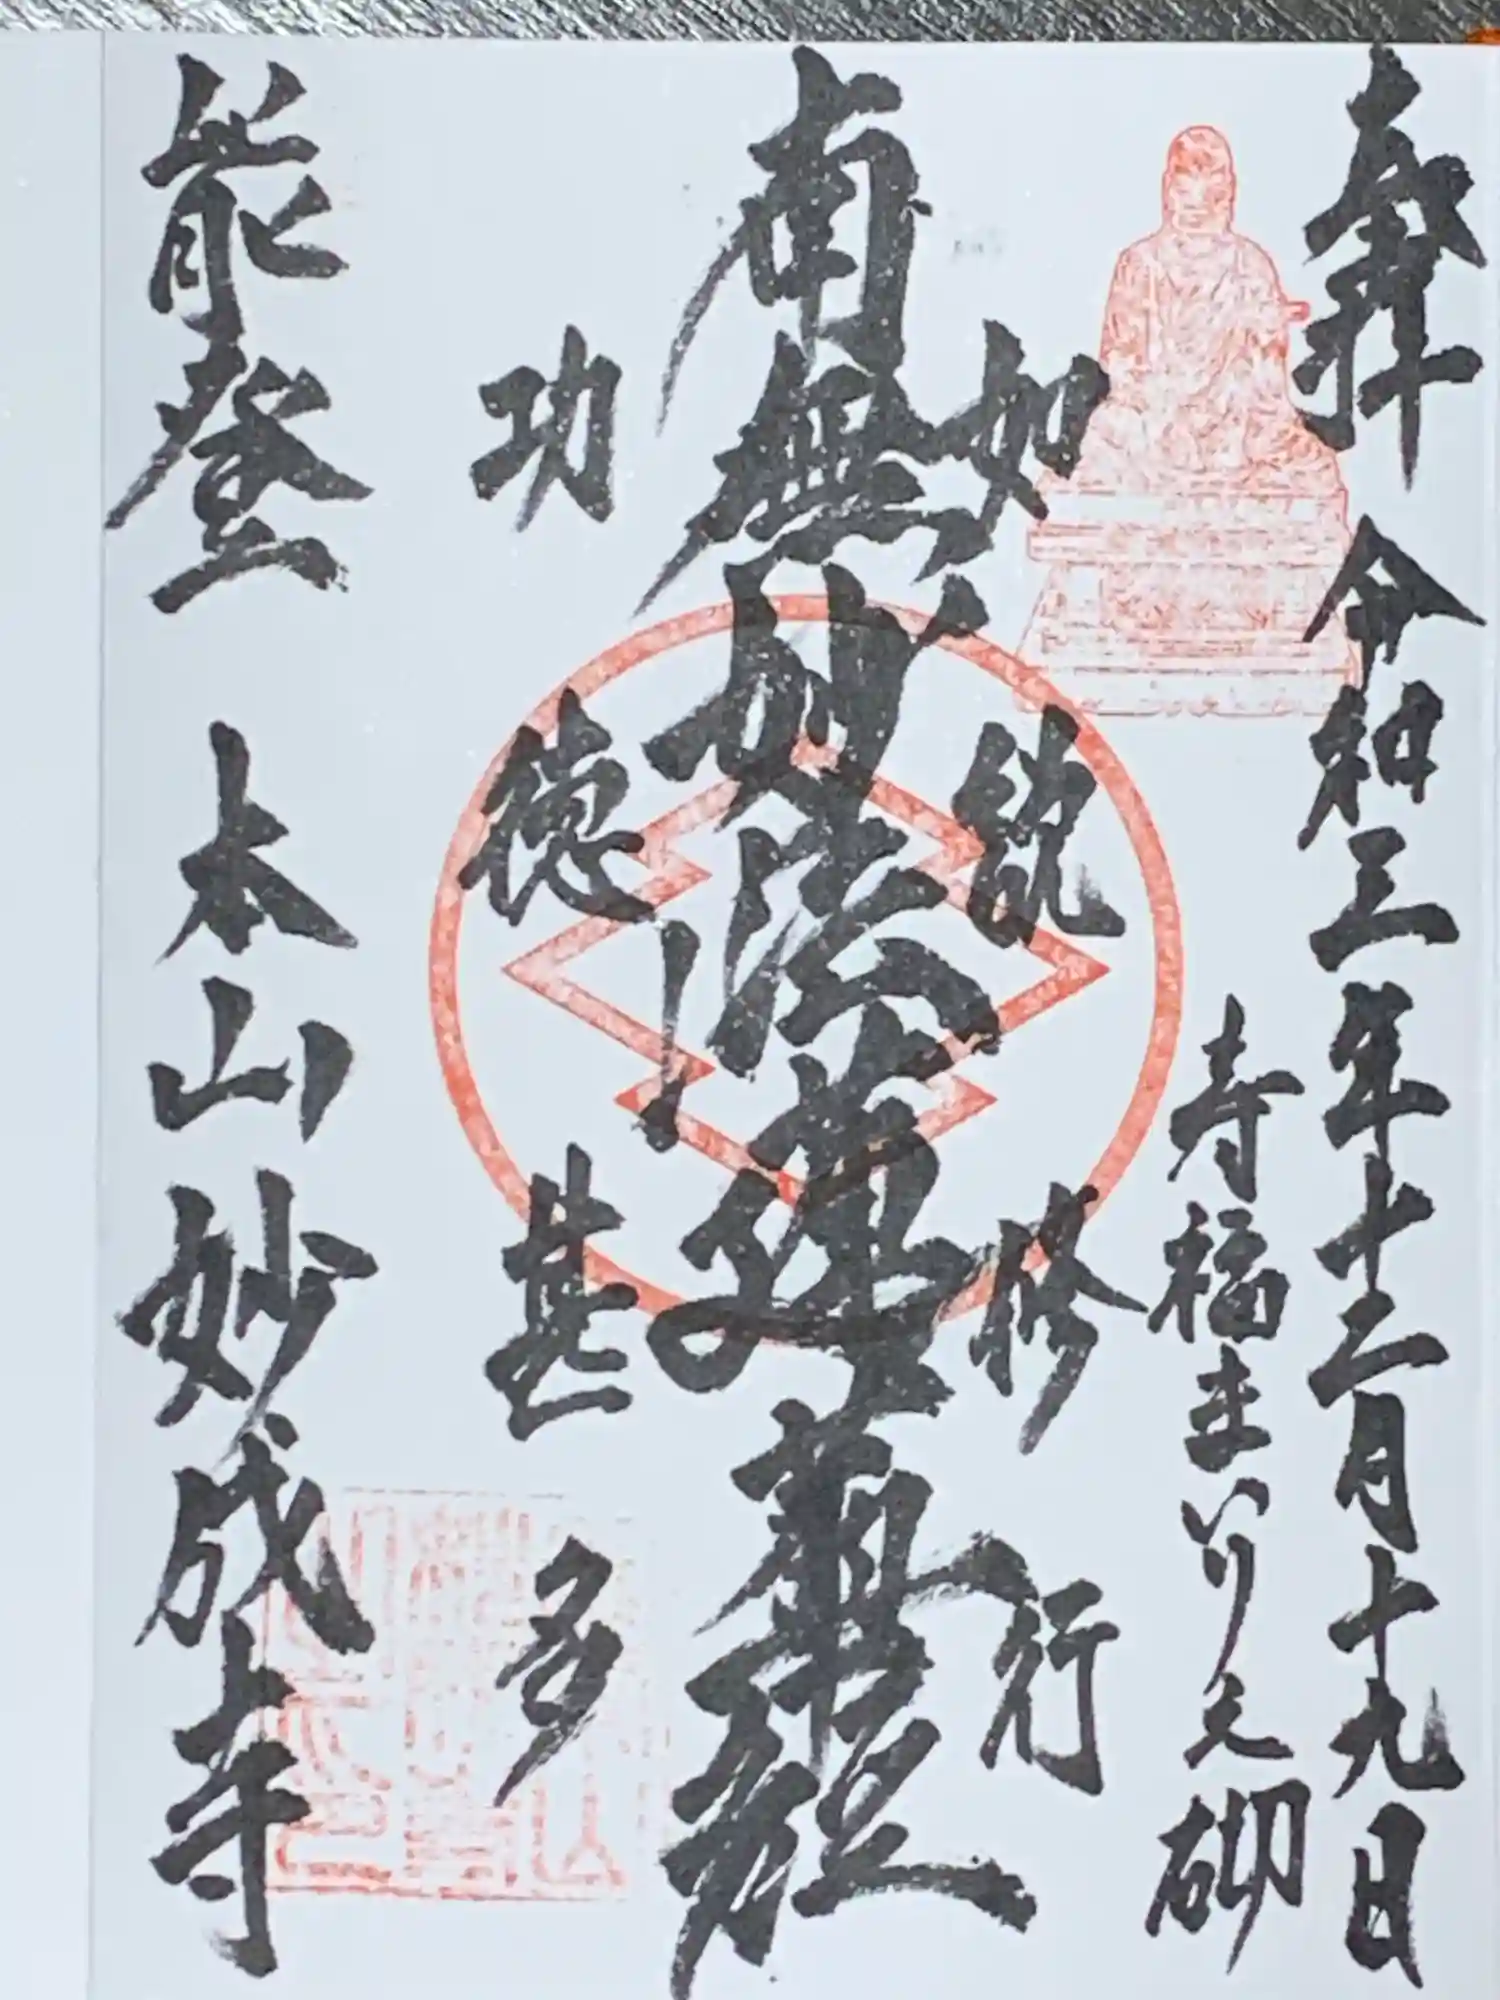 奉拝　令和三年十二月十九日
寿福まいり之砌
如説修行
南無妙法蓮華経
功徳甚多
能登　本山妙成寺